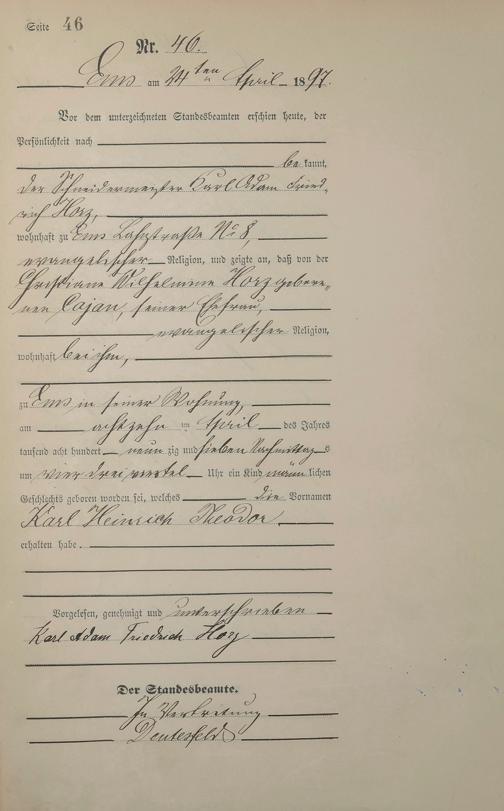 Seite 46
Nr. 46.
Ems am 24ten April 1897.
Vor dem unterzeichneten Standesbeamten erschien heute, der
Persönlichkeit nach
be kannt,
der Schneidermeister Karl Adam Fried-
rich Horz,
wohnhaft zu Ems Lahnstraße No 8,
evangelischer Religion, und zeigte an, daß von der
Christiane Wilhelmine Horz gebore-
nen Cajan, seiner Ehefrau,
evangelischer Religion,
wohnhaft bei ihm,
zu Ems in seiner Wohnung,
am achtzehn im April des Jahres
tausend acht hundert neun zig und sieben Nachmittags
um vier drei viertel Uhr ein Kind männ lichen
Geschlechts geboren worden sei, welches die Vornamen
Karl Heinrich Theodor
erhalten habe.
Vorgelesen, genehmigt und unterschrieben
Karl Adam Friedrich Horz
Der Standesbeamte.
In Vertretung